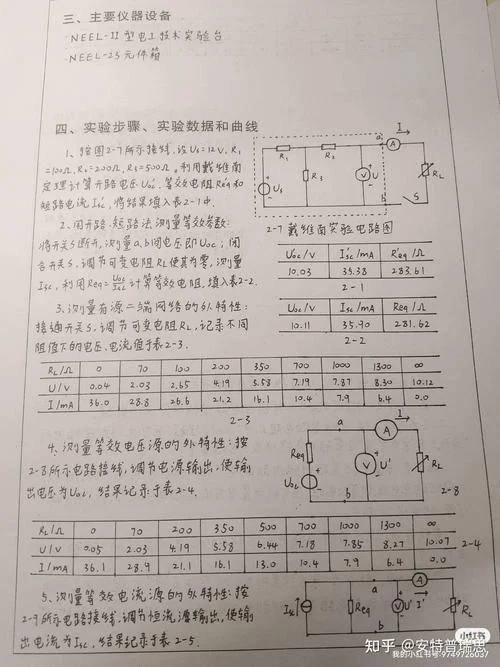 三、主要仪器设备
·NEEL-II型电工技术实验台
·NEEL-23元件箱
四、实验步骤、实验数据和曲线
1、按图2-7所示接线,设Us=12V,R1
=100Ω,R2=200Ω,R3=500Ω。利用戴维南
定理计算开路电压Uoc'、等效电阻Req'和
短路电流Isc',将结果填入表2-1中.
2、用开路、短路法测量等效参数:
将开关S断开,测量a,b间电压即Uoc;闭
合开关S,调节可变电阻RL使其为零,测量
Isc,利用Req=Uoc/Isc计算等效电阻,填入表2-2.
3、测量有源二端网络的外特性:
接通开关S,调节可变电阻RL,记录不同
阻值下的电压、电流值于表2-3.
R1 R2 R3 Us a b A I V U RL S
2-7 戴维南实验电路图
Uoc'/V Isc'/mA Req'/Ω
10.03 35.38 283.61
2-1
Uoc/V Isc/mA Req/Ω
10.11 35.90 281.62
2-2
RL/Ω 0 70 100 200 350 700 1000 1300 ∞
U/V 0.04 2.03 2.65 4.19 5.58 7.19 7.87 8.30 10.12
I/mA 36.0 28.8 26.6 21.2 16.1 10.4 7.9 6.4 0.0
2-3
4、测量等效电压源的外特性:按
2-8所示电路接线,调节电源输出,使输
出电压为Uoc,结果记录于表2-4.
Req Uoc a b A I V U' RL
2-8
RL/Ω 0 70 200 350 500 700 1000 1300 ∞
U/V 0.05 2.03 4.19 5.58 6.44 7.18 7.85 8.27 10.07
I/mA 36.1 28.9 21.1 16.1 13.0 10.4 7.9 6.4 0.0
2-4
5、测量等效电流源的外特性:按
2-9所示电路接线,调节恒流源输出,使输
出电流为Isc,结果记录于表2-5.
Isc Req V U' A I' RL
小红书
知乎 @安特普瑞思
我的小红书号:9749726037